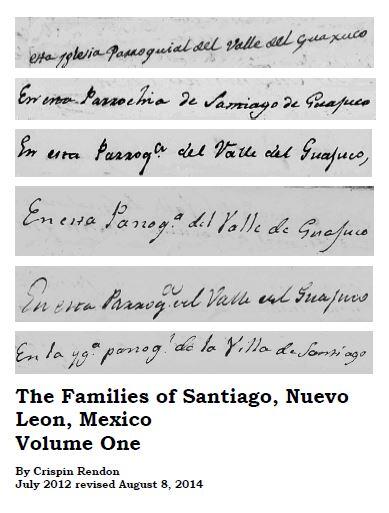 esta yglesia Parroquial del Valle del Guaxuco
En esta Parrochia de Santiago de Guajuco
En esta Parroq.ª del Valle del Guajuco,
En esta Parroq.ª del Valle de Guajuco
En esta Parroq.ª del Valle del Guajuco
En la yg.ª parroq.l de la Villa de Santiago
The Families of Santiago, Nuevo
Leon, Mexico
Volume One
By Crispin Rendon
July 2012 revised August 8, 2014